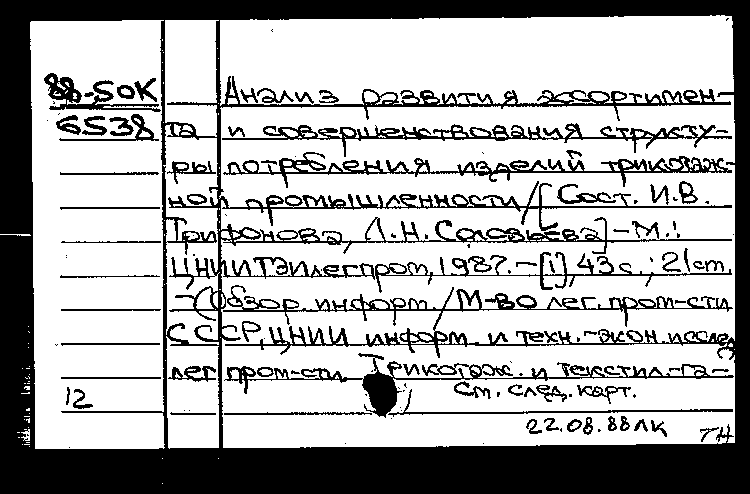 88-5ОК
6538
Анализ развития ассортимен-
та и совершенствования структу-
ры потребления изделий трикотаж-
ной промышленности / [Сост. И.В.
Трифонова, Л.Н. Соловьева] - М.:
ЦНИИТЭИлегпром, 1987. - [1], 43 с.; 21 cm.
- (Обзор. информ. / М-во лег. пром-сти
СССР, ЦНИИ информ. и техн.-экон. исслед
лег пром-сти. Трикотаж. и текстил.-га-
12
См. след. карт.
22.08.88 ЛК
ТН